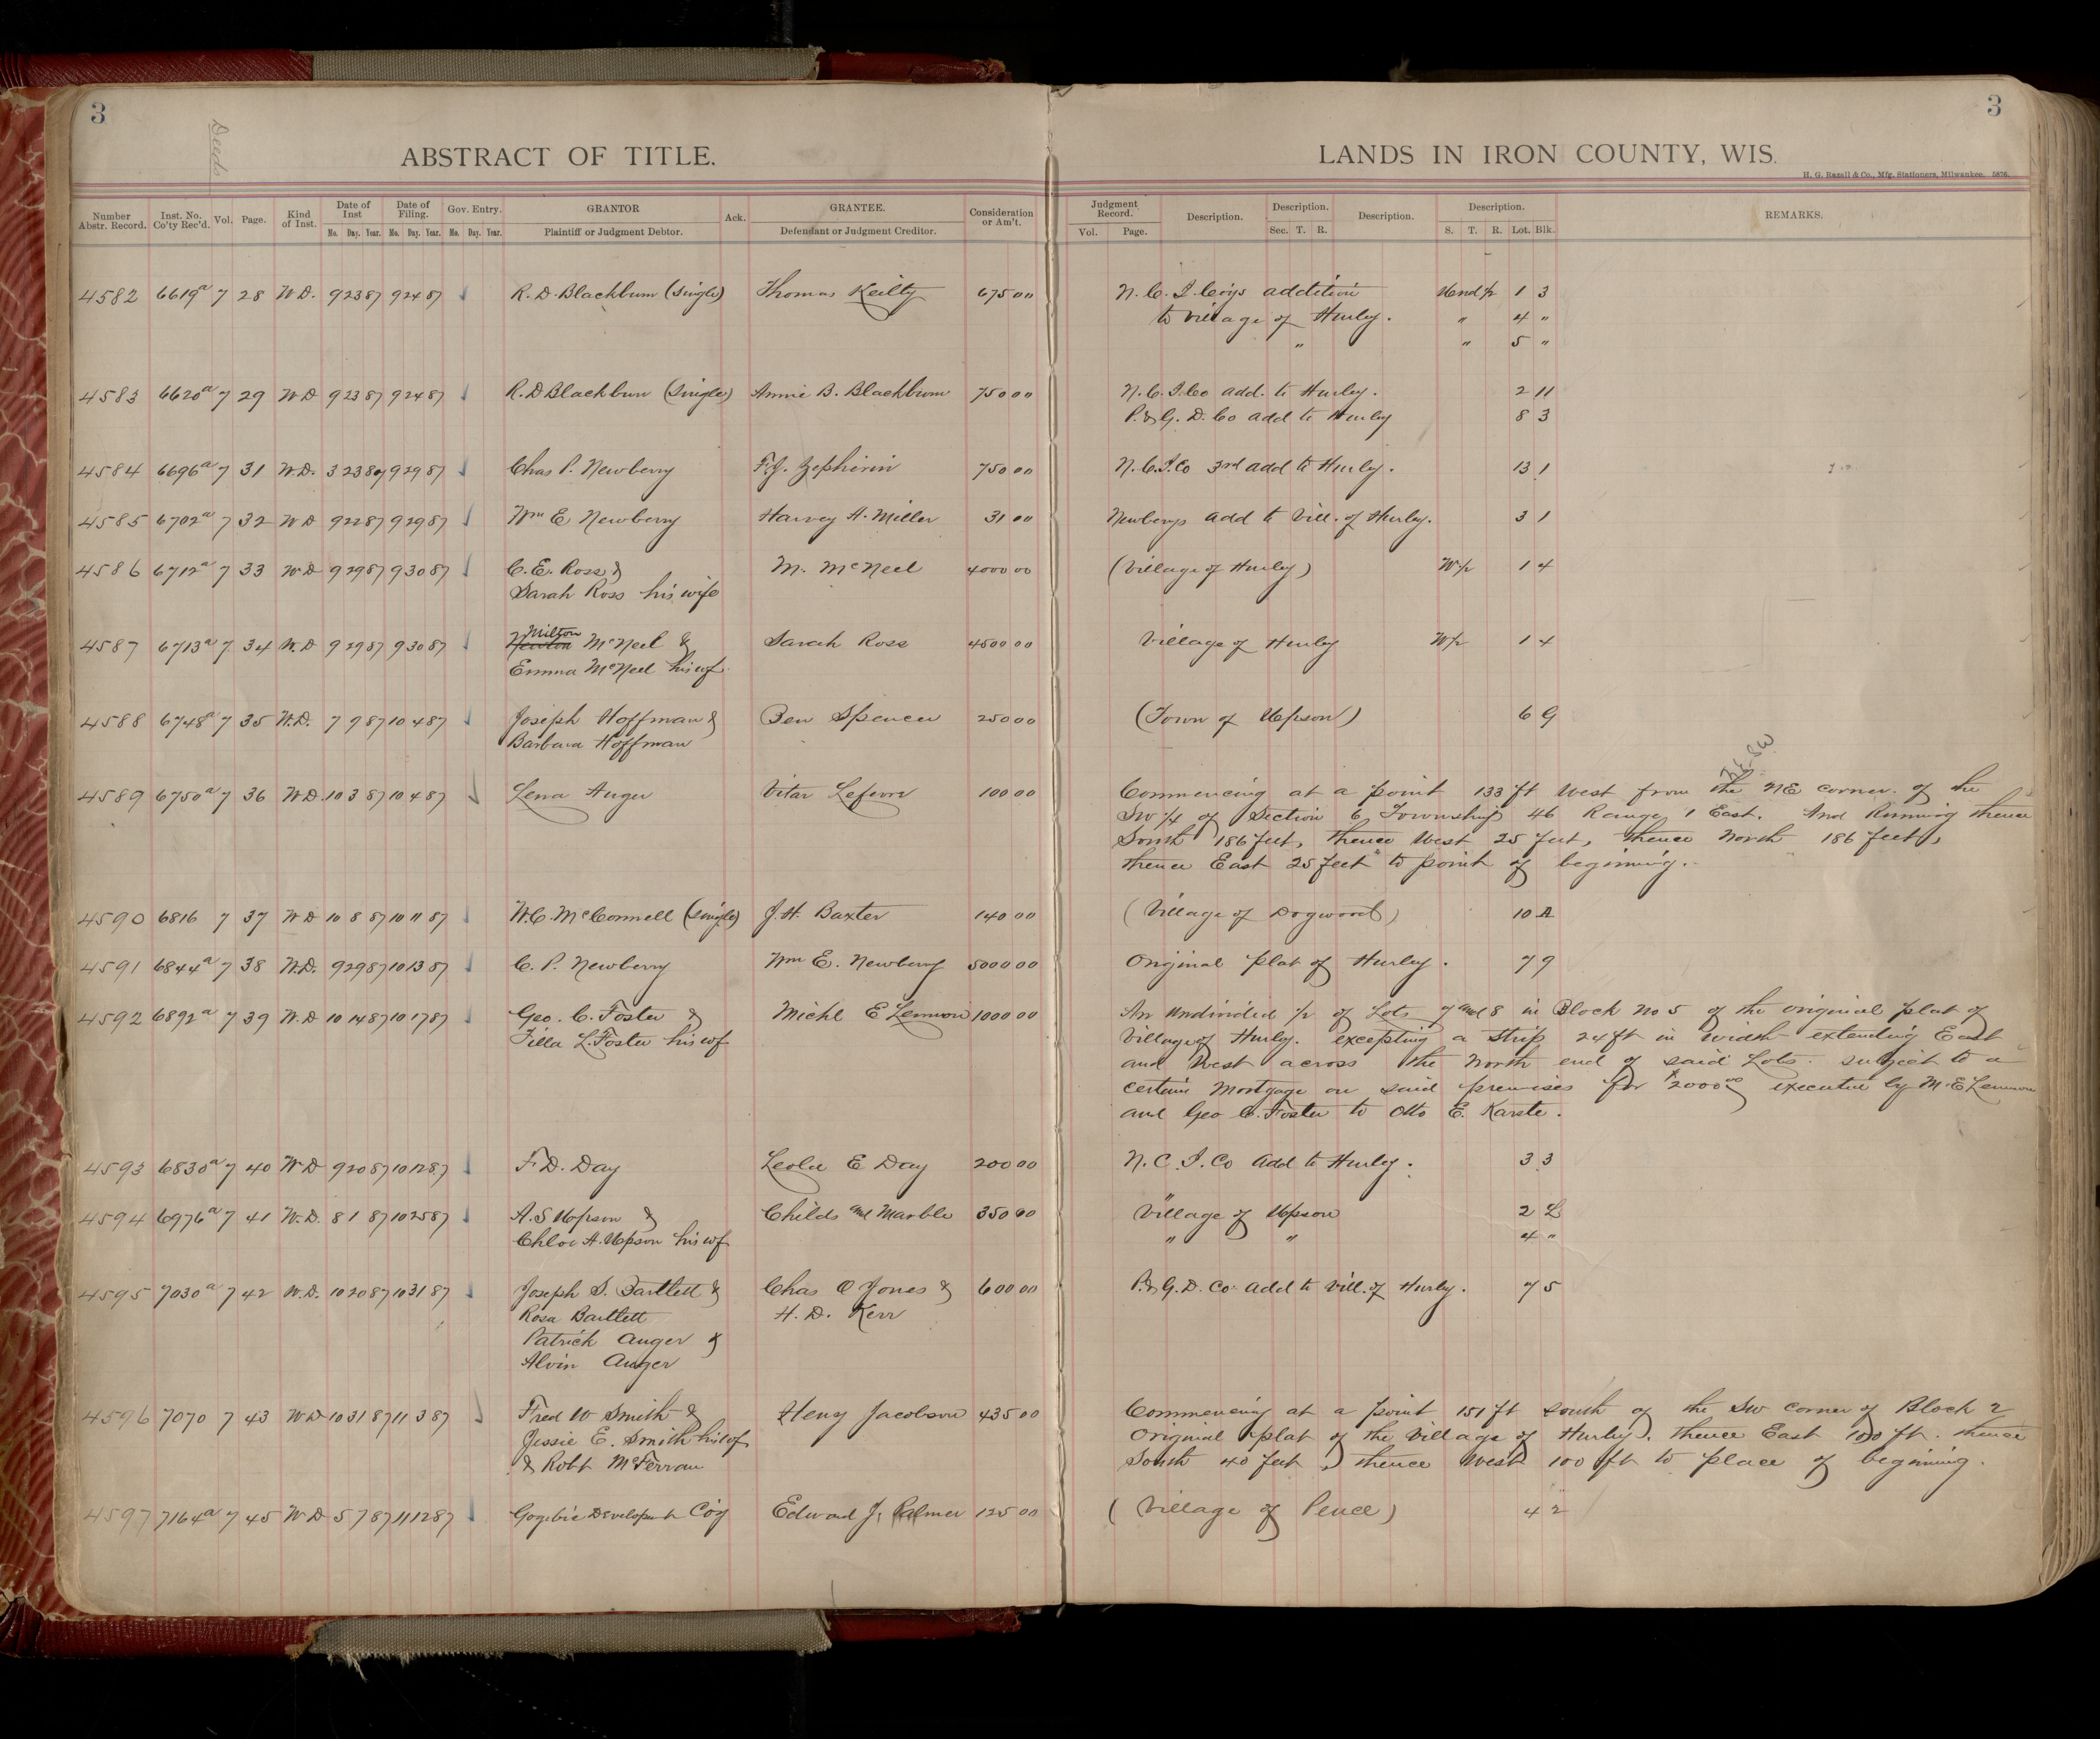 3
3
Deeds
ABSTRACT OF TITLE.
LANDS IN IRON COUNTY, WIS.
H. G. Razall & Co., Mfg. Stationers, Milwaukee. 5876.
Number Abstr. Record. Inst. No. Co'ty Rec'd. Vol. Page. Kind of Inst. Date of Inst Mo. Day. Year. Date of Filing. Mo. Day. Year. Gov. Entry. Mo. Day. Year. GRANTOR Plaintiff or Judgment Debtor. Ack. GRANTEE. Defendant or Judgment Creditor. Consideration or Am't. Judgment Record. Vol. Page. Description. Description. Sec. T. R. Description. Description. S. T. R. Lot. Blk. REMARKS.
4582 6619a 7 28 W.D. 9 23 87 9 24 87 R. D. Blackburn (single) Thomas Keilty 675 00 N. C. I. Coys addition Und ½ 1 3
to Village of Hurley. " 4 "
" " 5 "
4583 6620a 7 29 W D 9 23 87 9 24 87 R. D Blackburn (single) Annie B. Blackburn 750 00 N. C. I. Co add. to Hurley. 2 11
P. & G. D. Co add to Hurley 8 3
4584 6696a 7 31 W.D. 3 23 87 9 29 87 Chas P. Newberry F. J. Zepherin 750 00 N. C. I. Co 3rd add to Hurley. 13 1
4585 6702a 7 32 W D 9 22 87 9 29 87 Wm E Newberry Harvey H. Miller 31 00 Newberys add to Vill. of Hurley. 3 1
4586 6712a 7 33 W D 9 29 87 9 30 87 C. E. Ross & M. McNeel 4000 00 (Village of Hurley) W ½ 1 4
Sarah Ross his wife
Milton
4587 6713a 7 34 W. D 9 29 87 9 30 87 Newton McNeel & Sarah Ross 4500 00 Village of Hurley W ½ 1 4
Emma McNeel his wf.
4588 6748a 7 35 W.D. 7 9 87 10 4 87 Joseph Hoffman & Ben Spencer 250 00 (Town of Upson) 6 G
Barbara Hoffman
4589 6750a 7 36 W D. 10 3 87 10 4 87 Lena Auger Vitar Lefevre 100 00 Commencing at a point 133 ft West from the NE corner of the
SW ¼ of Section 6, Township 46 Range 1 East. And Running thence
South 186 feet, thence West 25 feet, thence North 186 feet,
thence East 25 feet to point of beginning.
4590 6816 7 37 W D 10 8 87 10 11 87 W. C. McConnell (single) J. H. Baxter 140 00 (Village of Dogwood) 10 A
4591 6844a 7 38 W.D. 9 29 87 10 13 87 C. P. Newberry Wm E. Newberry 5000 00 Original plat of Hurley. 7 9
4592 6892a 7 39 W. D 10 14 87 10 17 87 Geo. C. Foster & Michl E Lennon 1000 00 An undivided ½ of Lots 7 and 8 in Block No 5 of the original plat of
Tilla L. Foster his wf Village of Hurley. excepting a strip 24 ft in width extending East
and West across the North end of said Lots. subject to a
certain Mortgage on said premises for $2000 00 executed by M. E Lennon
and Geo C. Foster to Otto E. Karste.
4593 6830a 7 40 W D 9 20 87 10 12 87 F. D. Day Leola E Day 200 00 N. C. I. Co Add to Hurley. 3 3
4594 6976a 7 41 W. D. 8 1 87 10 25 87 A. S Upson & Childs and Marble 350 00 Village of Upson 2 L
Chloe A. Upson his wf " " 4 "
4595 7030a 7 42 W. D. 10 20 87 10 31 87 Joseph S. Bartlett & Chas O Jones & 600 00 P. & G. D. Co. Add to Vill. of Hurley. 7 5
Rosa Bartlett H. D. Kerr
Patrick Auger &
Alvin Auger
4596 7070 7 43 W D 10 31 87 11 3 87 Fred W Smith & Heny Jacobson 435 00 Commencing at a point 151 ft south of the SW corner of Block 2
Jessie E. Smith his wf Original plat of the Village of Hurley. thence East 100 ft. thence
& Robt McFerran South 40 feet, thence West 100 ft to place of beginning.
4597 7164a 7 45 W D 5 7 87 11 12 87 Gogebic Developmt Coy Edward J. Palmer 125 00 (Village of Pence) 4 2